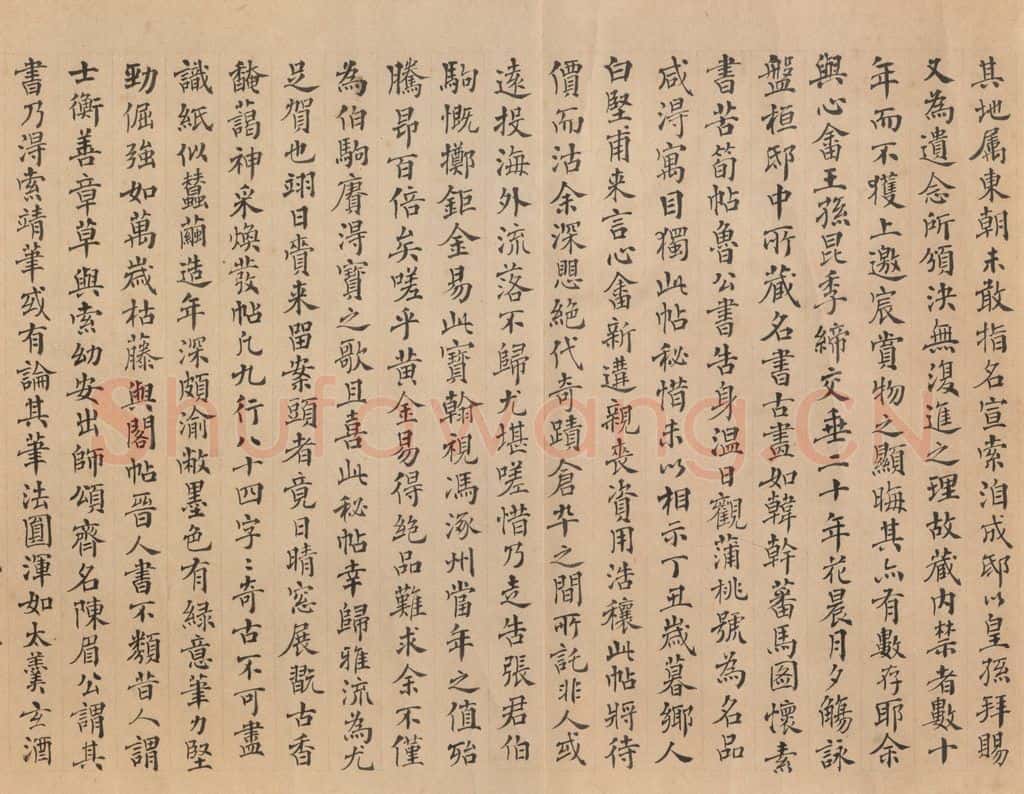 其地属東朝未敢指名宣索洎成邸以皇孫拜賜
又為遺念所頒決無復進之理故藏內禁者數十
年而不獲上邀宸賞物之顯晦其亦有數存耶余
與心畬王孫昆季締交垂二十年花晨月夕觴詠
盤桓邸中所藏名書古畫如韓幹蕃馬圖懷素
書苦筍帖魯公書告身溫日觀蒲桃號為名品
咸得寓目獨此帖秘惜未以相示丁丑歲暮鄉人
白堅甫来言心畬新遘親喪資用浩穰此帖將待
價而沽余深思絕代奇蹟倉卒之間所託非人或
遠投海外流落不歸尤堪嗟惜乃走告張君伯
駒慨擲鉅金易此寶翰視馮涿州當年之值殆
騰昂百倍矣嗟乎黃金易得絕品難求余不僅
為伯駒賡得寶之歌且喜此秘帖幸歸雅流為尤
足賀也翊日賫来留案頭者竟日晴窓展翫古香
馣藹神采煥發帖凡九行八十四字〻奇古不可盡
識紙似蠶繭造年深頗渝敝墨色有綠意筆力堅
勁倔強如萬歲枯藤與閣帖晉人書不類昔人謂
士衡善章草與索幼安出師頌齊名陳眉公謂其
書乃得索靖筆或有論其筆法圓渾如太羹玄酒
Shufawang.CN